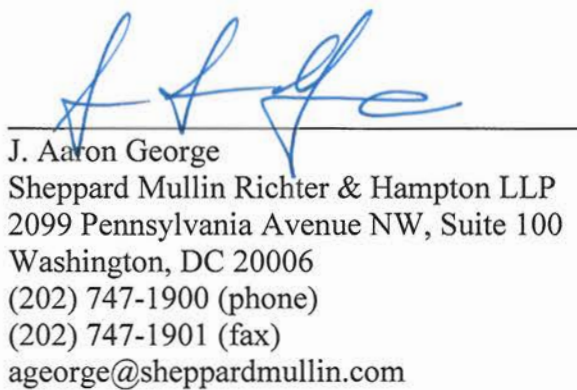 J. Aaron George
Sheppard Mullin Richter & Hampton LLP
2099 Pennsylvania Avenue NW, Suite 100
Washington, DC 20006
(202) 747-1900 (phone)
(202) 747-1901 (fax)
ageorge@sheppardmullin.com